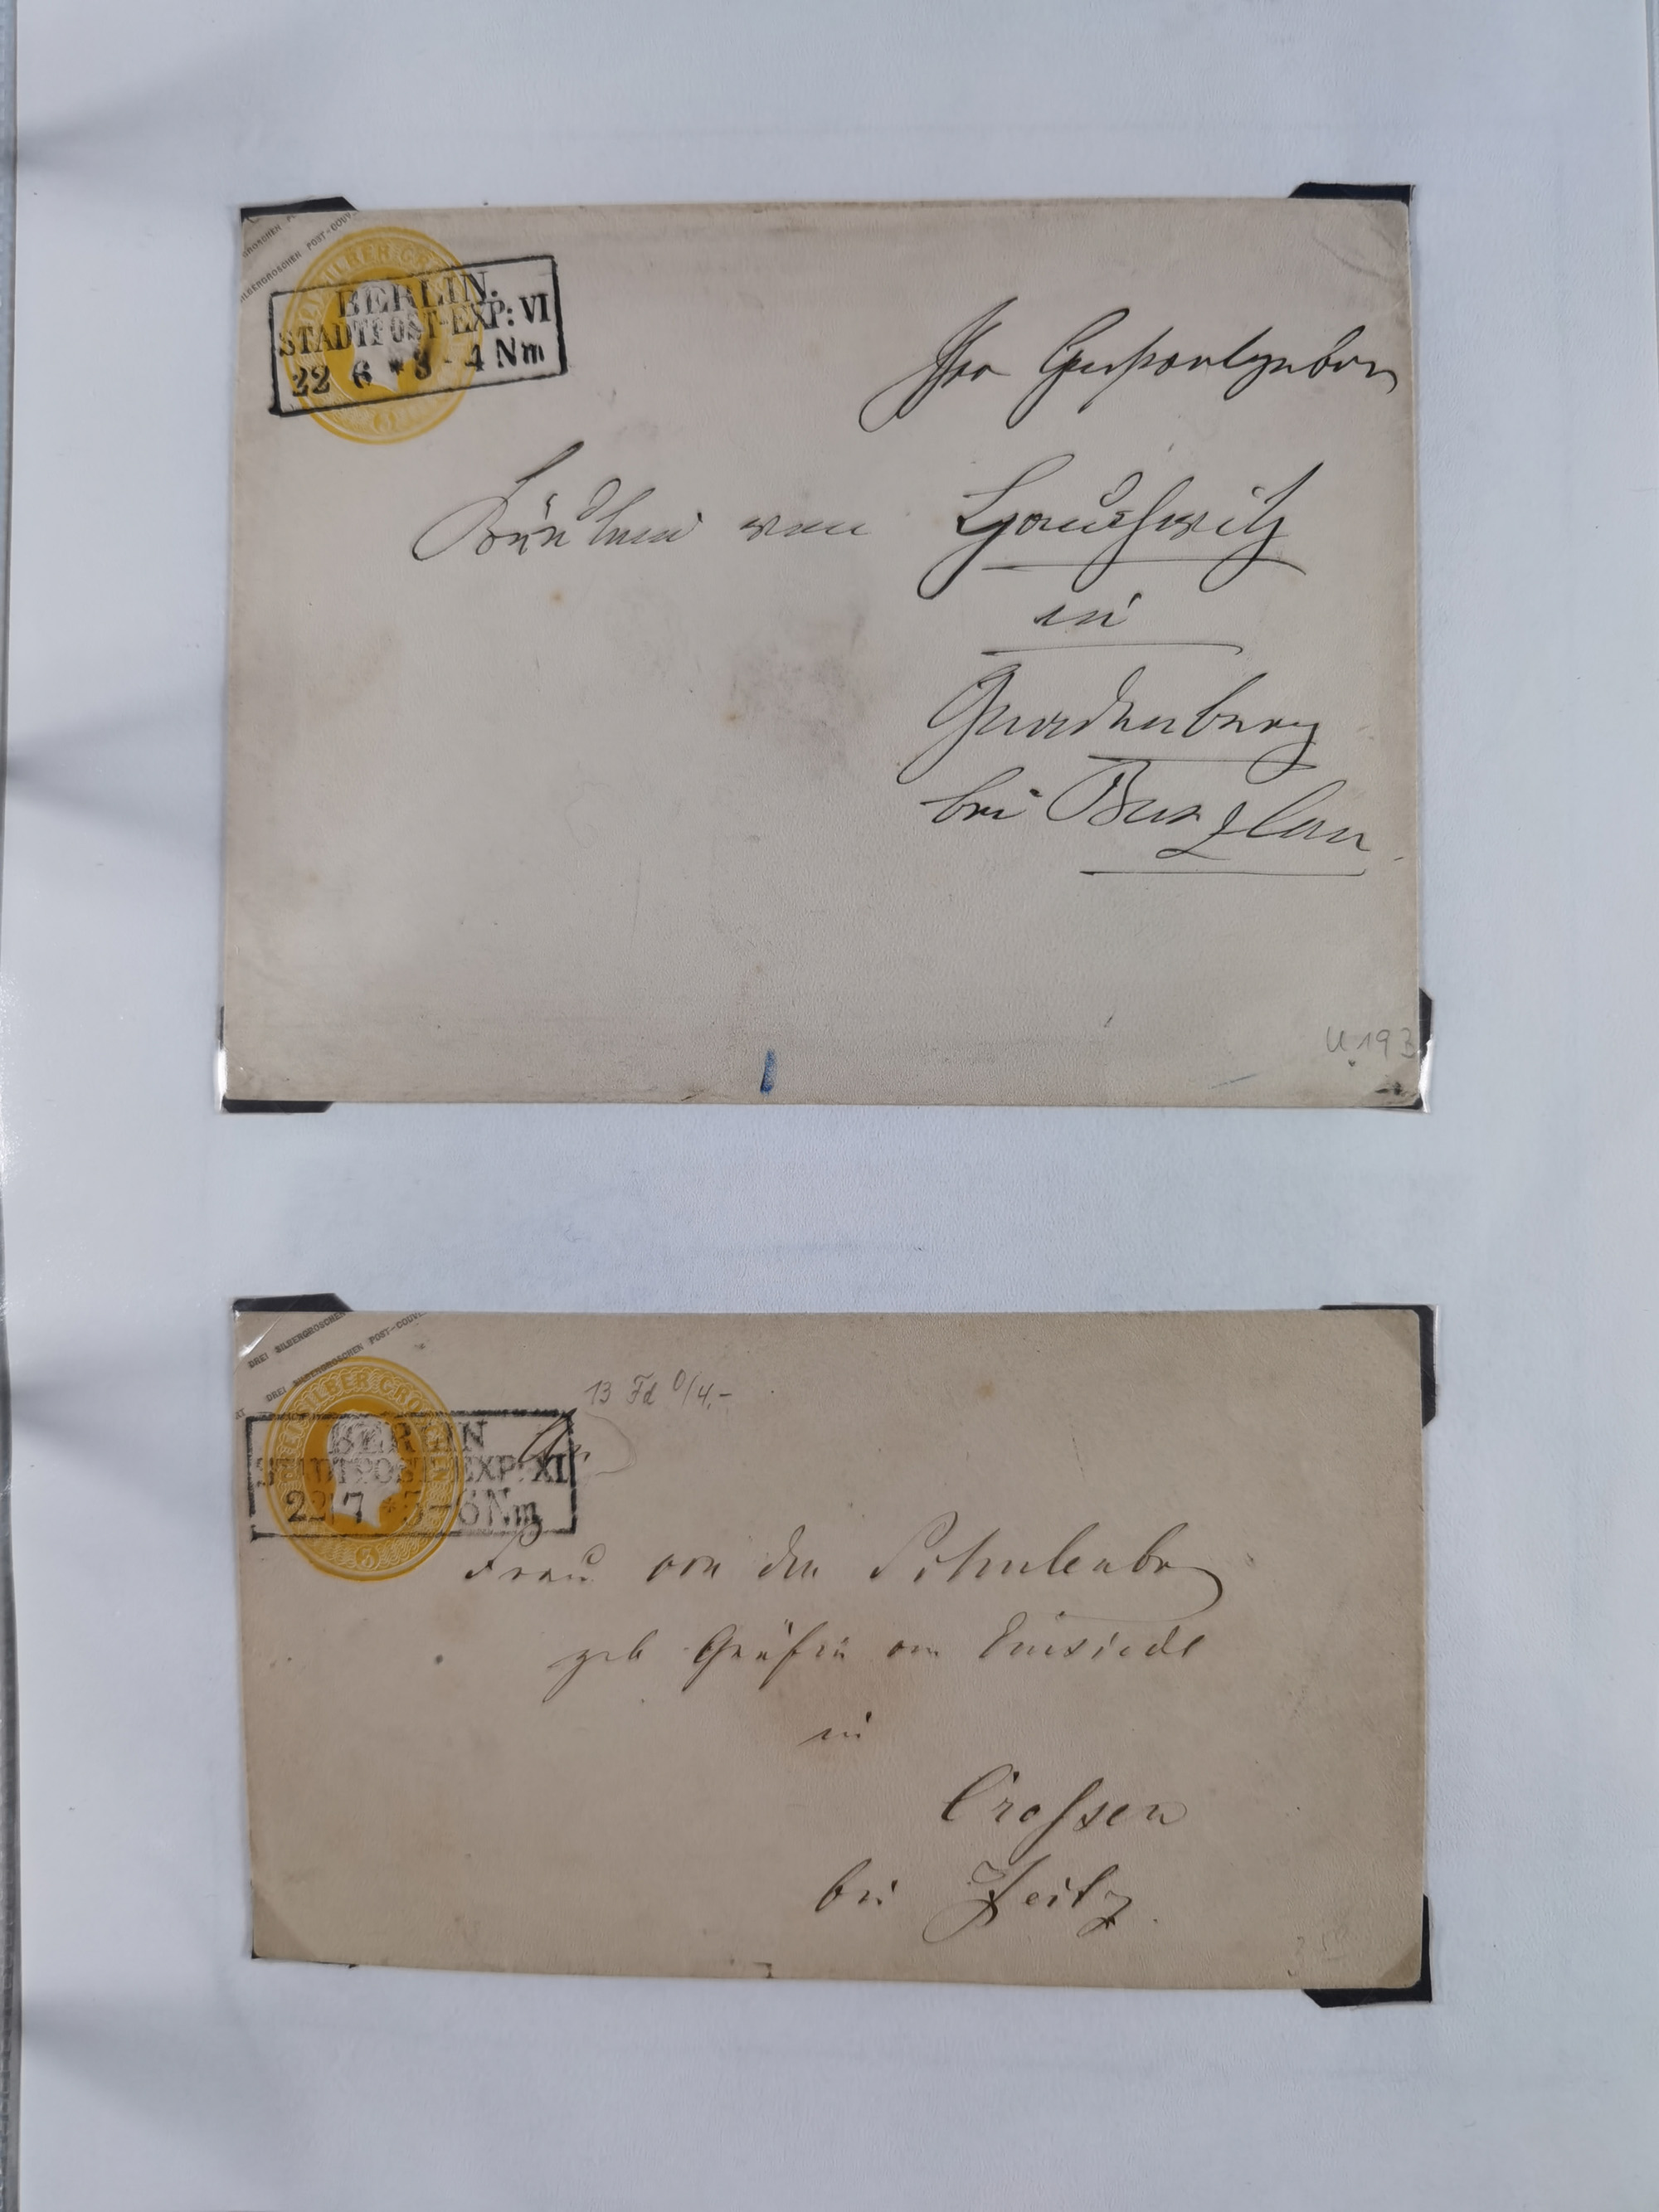 SILBERGROSCHEN POST-COUV
BERLIN.
STADTPOST-EXP: VI
22 6 * 3-4 Nm
Ihro Hochwohlgeboren
Fräulein von
in
bei Bunzlau
U.19 B
DREI SILBERGROSCHEN
DREI SILBERGROSCHEN POST-COUVE
DREI SILBER GROSCHEN
3
13 Fd 0/4,-
BERLIN
STADTPOST-EXP: XI
22 7 * 5-6 Nm
An
Frau von der Schulenburg
geb Gräfin von Einsiedel
in
Crossen
bei Zeitz.